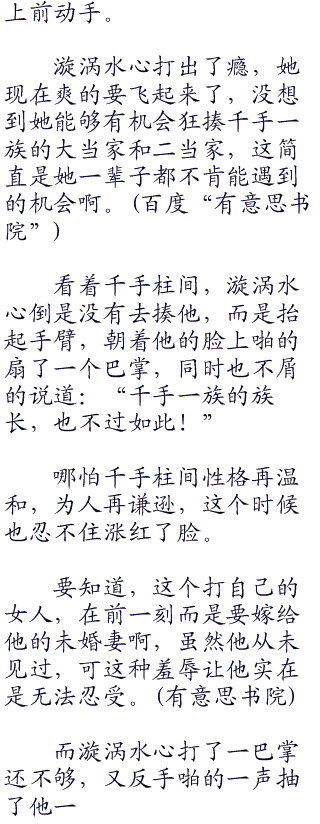 上前动手。
漩涡水心打出了瘾，她
现在爽的要飞起来了，没想
到她能够有机会狂揍千手一
族的大当家和二当家，这简
直是她一辈子都不肯能遇到
的机会啊。(百度“有意思书
院”)
看着千手柱间，漩涡水
心倒是没有去揍他，而是抬
起手臂，朝着他的脸上啪的
扇了一个巴掌，同时也不屑
的说道：“千手一族的族
长，也不过如此！”
哪怕千手柱间性格再温
和，为人再谦逊，这个时候
也忍不住涨红了脸。
要知道，这个打自己的
女人，在前一刻而是要嫁给
他的未婚妻啊，虽然他从未
见过，可这种羞辱让他实在
是无法忍受。(有意思书院)
而漩涡水心打了一巴掌
还不够，又反手啪的一声抽
了他一